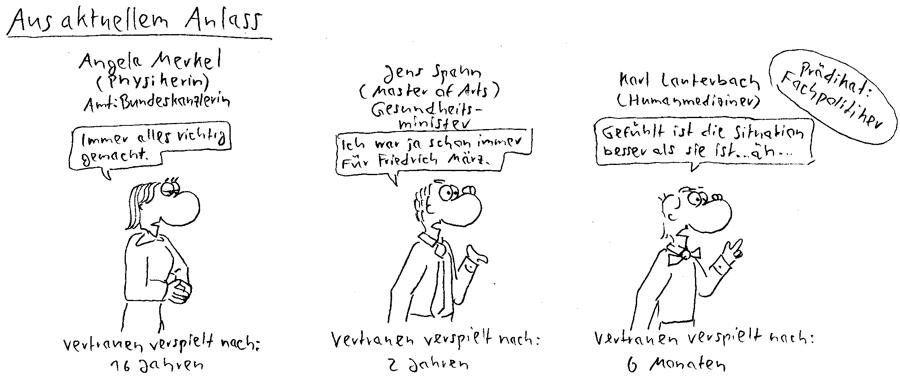 Aus aktuellem Anlass
Angela Merkel
(Physikerin)
Amt: Bundeskanzlerin
Immer alles richtig
gemacht.
Vertrauen verspielt nach:
16 Jahren
Jens Spahn
(Master of Arts)
Gesundheits-
minister
Ich war ja schon immer
Für Friedrich März.
Vertrauen verspielt nach:
2 Jahren
Karl Lauterbach
(Humanmediziner)
Prädikat:
Fachpolitiker
Gefühlt ist die Situation
besser als sie ist...äh...
Vertrauen verspielt nach:
6 Monaten